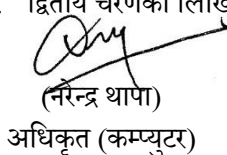 द्वितीय चरणको
(नरेन्द्र थापा)
अधिकृत (कम्प्युटर)